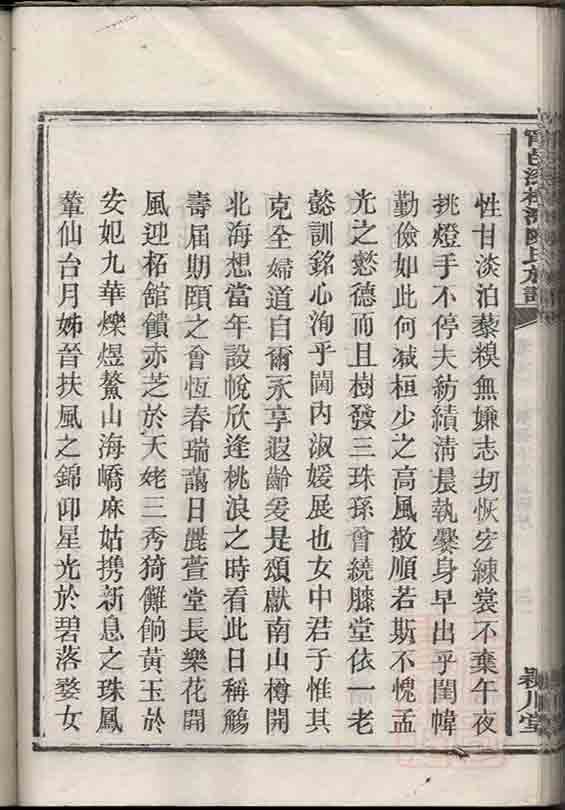 性甘淡泊藜糗無嫌志切恢宏練裳不棄午夜
挑燈手不停夫紡績清晨執爨身早出乎閨幃
勤儉如此何减桓少之高風敬順若斯不愧孟
光之懋德而且樹發三珠孫曾繞膝堂依一老
懿訓銘心洵乎閫内淑媛展也女中君子惟其
克全婦道自爾永享遐齡爰是頌獻南山樽開
北海想當年設帨欣逢桃浪之時看此日稱觴
壽屆期頤之會恆春瑞藹日麗萱堂長樂花開
風迎柘舘饋赤芝於天姥三秀猗儺餉黃玉於
安妃九華爍煜鰲山海嶠麻姑携新息之珠鳳
輦仙台月姊晉扶風之錦仰星光於碧落婺女
陳氏族譜
潁川堂